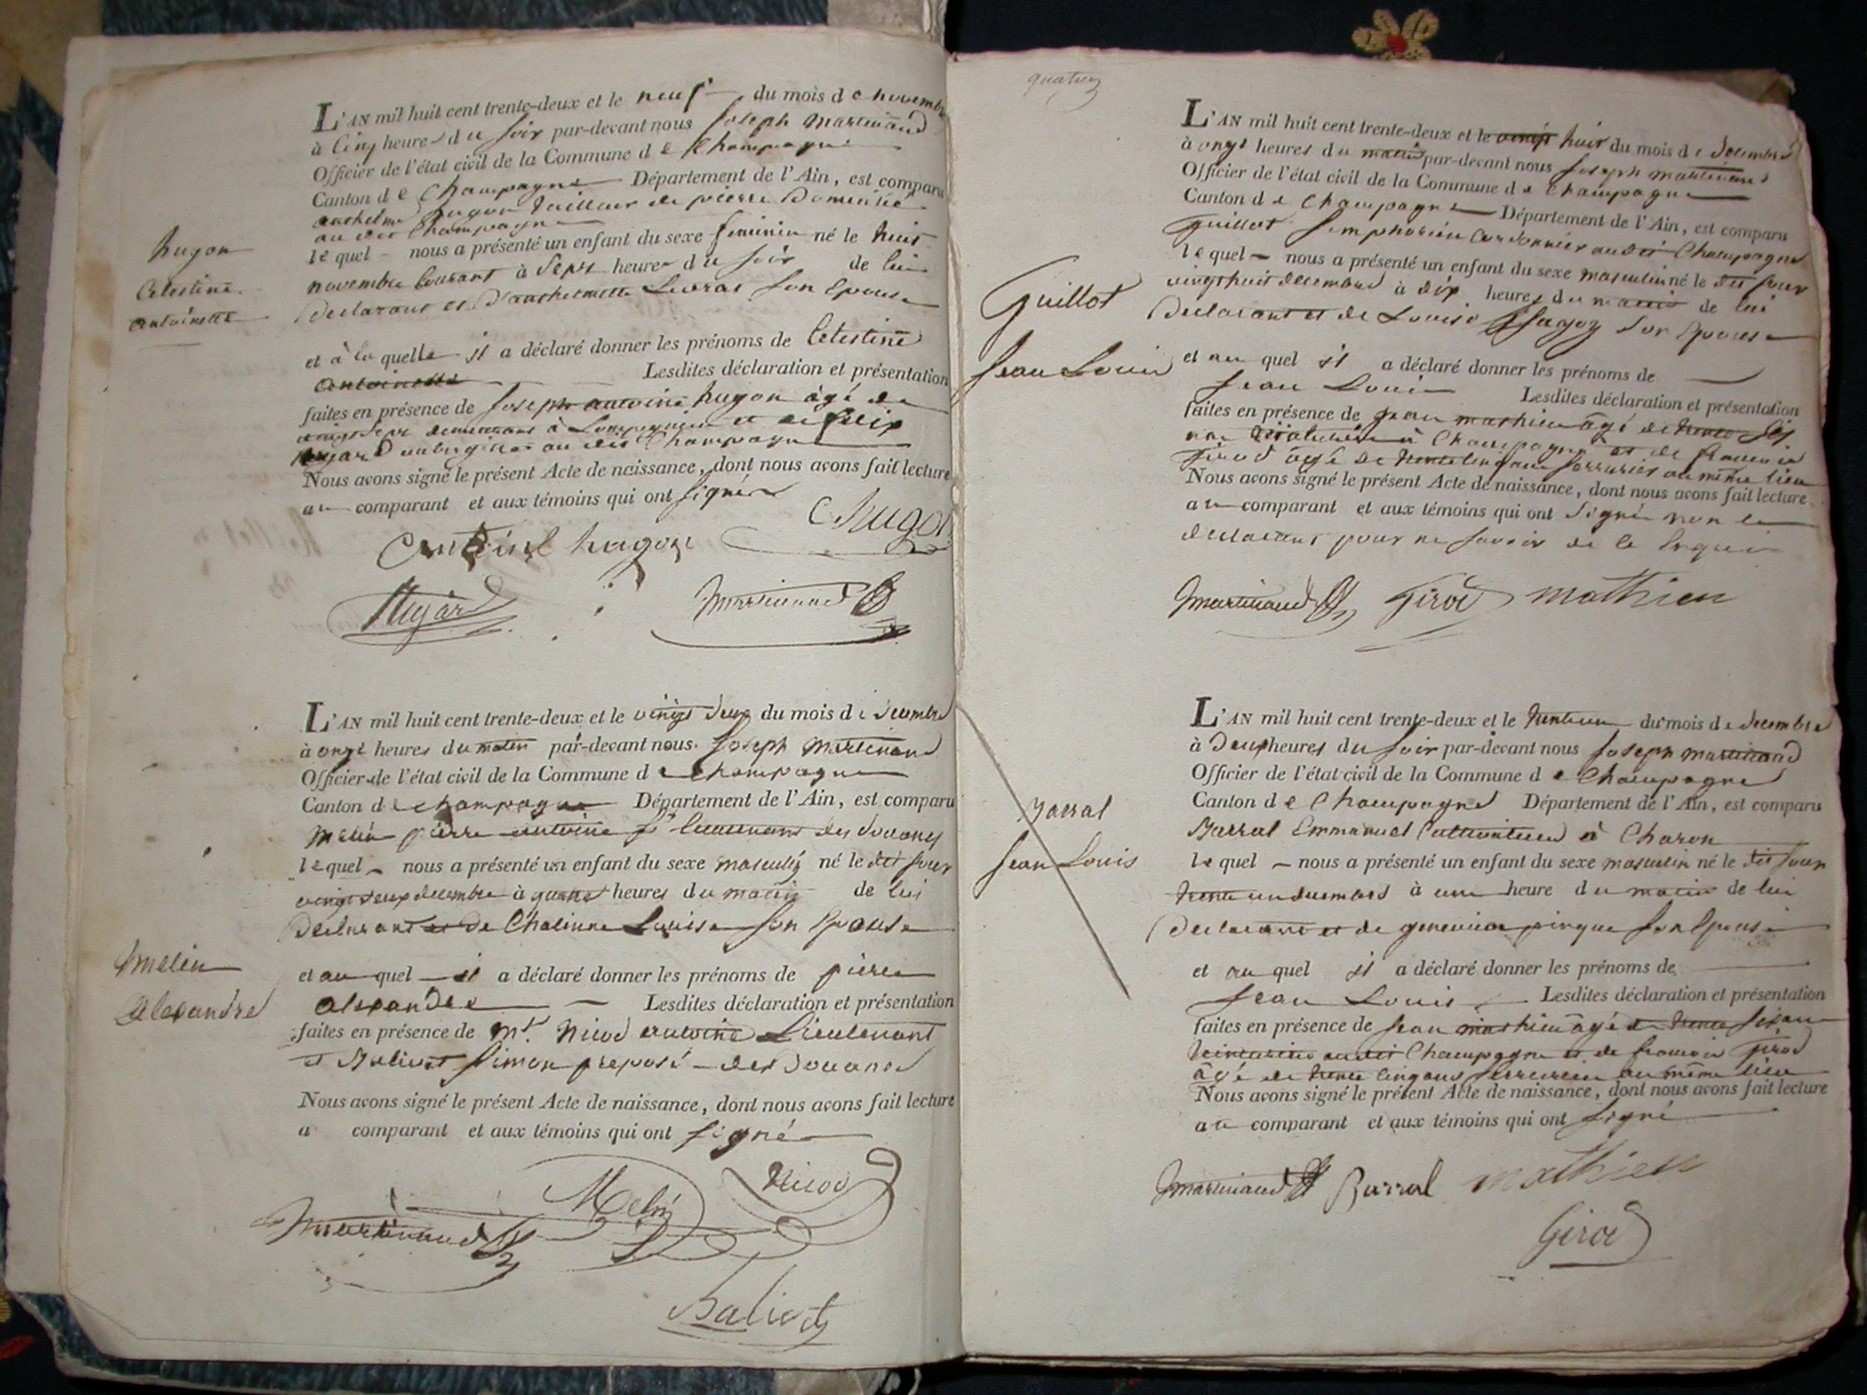 L'AN mil huit cent trente-deux et le neuf du mois de novembre
à cinq heures du soir par-devant nous Joseph Martinand
Officier de l'état civil de la Commune de Champagne
Canton de Champagne Département de l'Ain, est comparu
anthelme hugon tailleur de pierre Domicilié
au dit Champagne
lequel nous a présenté un enfant du sexe féminin né le huit
novembre courant à sept heures du soir de lui
Déclarant et D'anthelmette son Epouse
et à la quelle il a déclaré donner les prénoms de Celestine
antoinette Lesdites déclaration et présentation
faites en présence de Joseph antoine hugon âgé de
vingt sept demeurant à et de felix
Hugard aubergiste au dit Champagne
Nous avons signé le présent Acte de naissance, dont nous avons fait lecture
au comparant et aux témoins qui ont signé
hugon
Celestine
antoinette
C hugon
antoine hugon
Hugard
Martinand
L'AN mil huit cent trente-deux et le vingt deux du mois de decembre
à onze heures du matin par-devant nous Joseph Martinand
Officier de l'état civil de la Commune de Champagne
Canton de Champagne Département de l'Ain, est comparu
Melin pierre antoine Lieutenant des Douanes
lequel nous a présenté un enfant du sexe masculin né le dit jour
vingt deux decembre à quatre heures du matin de lui
Declarant et de Louise son Epouse
et au quel il a déclaré donner les prénoms de pierre
alexandre Lesdites déclaration et présentation
faites en présence de Mr. Nicod antoine Lieutenant
et Balivet Simon preposé des Douanes
Nous avons signé le présent Acte de naissance, dont nous avons fait lecture
a comparant et aux témoins qui ont signé
Melin
Alexandre
Nicod
Melin
Martinand
Balivet
L'AN mil huit cent trente-deux et le vingt huit du mois de decembre
à onze heures du matin par-devant nous Joseph Martinand
Officier de l'état civil de la Commune de Champagne
Canton de Champagne Département de l'Ain, est comparu
Guillot Simphorien Cordonnier au dit Champagne
lequel nous a présenté un enfant du sexe masculin né le dit jour
vingt huit decembre à dix heures du matin de lui
Declarant et de Louise son Epouse
et au quel il a déclaré donner les prénoms de
Jean Louis Lesdites déclaration et présentation
faites en présence de Jean mathieu âgé de trente six
ans à Champagne et de francois
Girod âgé de trente cinq ans serrurier au même lieu
Nous avons signé le présent Acte de naissance, dont nous avons fait lecture
au comparant et aux témoins qui ont signé non le
declarant pour ne savoir de ce Enquis
Guillot
Jean Louis
Martinand Girod Mathieu
L'AN mil huit cent trente-deux et le trente un du mois de decembre
à Deux heures du soir par-devant nous Joseph Martinand
Officier de l'état civil de la Commune de Champagne
Canton de Champagne Département de l'Ain, est comparu
Barral Emmanuel Cultivateur à Charon
lequel nous a présenté un enfant du sexe masculin né le dit jour
trente un decembre à une heure du matin de lui
Declarant et de genevieve son Epouse
et au quel il a déclaré donner les prénoms de
Jean Louis Lesdites déclaration et présentation
faites en présence de Jean mathieu âgé de trente six ans
teinturier au dit Champagne et de francois Girod
âgé de trente cinq ans serrurier au même lieu
Nous avons signé le présent Acte de naissance, dont nous avons fait lecture
au comparant et aux témoins qui ont signé
Barral
Jean Louis
Martinand Barral Mathieu
Girod